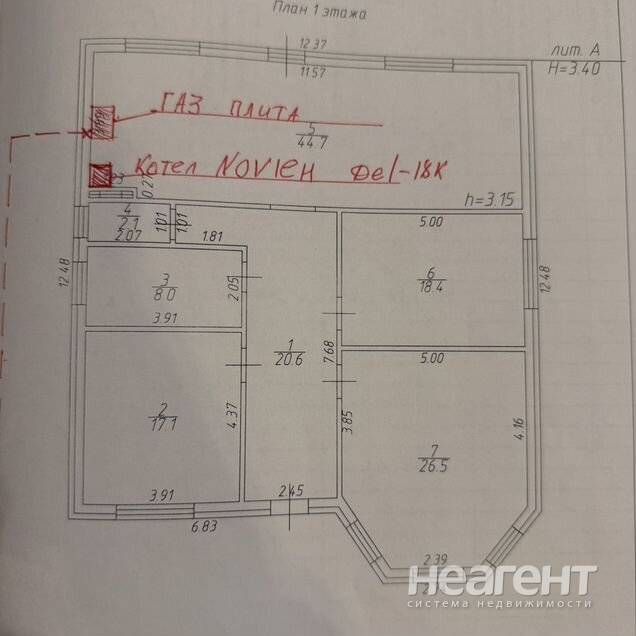 План 1 этажа
12.37
лит. А
11.57
H=3.40
ГАЗ ПЛИТА
5
44.7
КОТЕЛ NOVIEН Del-18К
0.27
h=3.15
4
2.1
2.07
1.01
1.01
1.81
5.00
12.48
3
8.0
2.05
6
18.4
12.48
3.91
1
20.6
7.68
5.00
2
17.1
4.37
3.85
4.16
7
26.5
3.91
2.45
6.83
2.39
неагент
система недвижимости